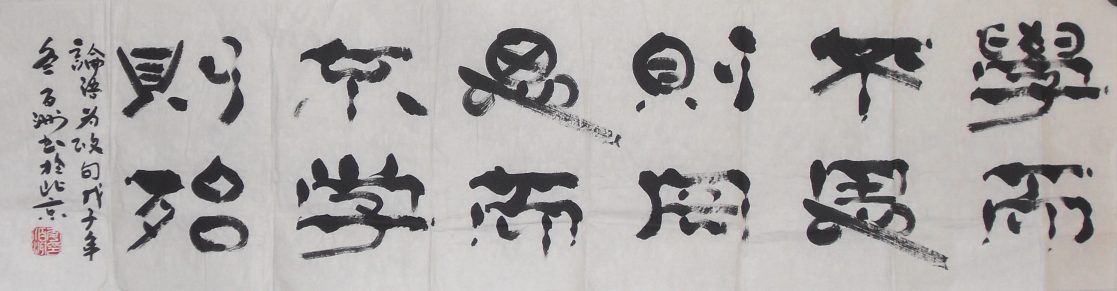 學而
不思
則罔
思而
不学
則殆
論語为政句戊子年
冬百洲书於北京